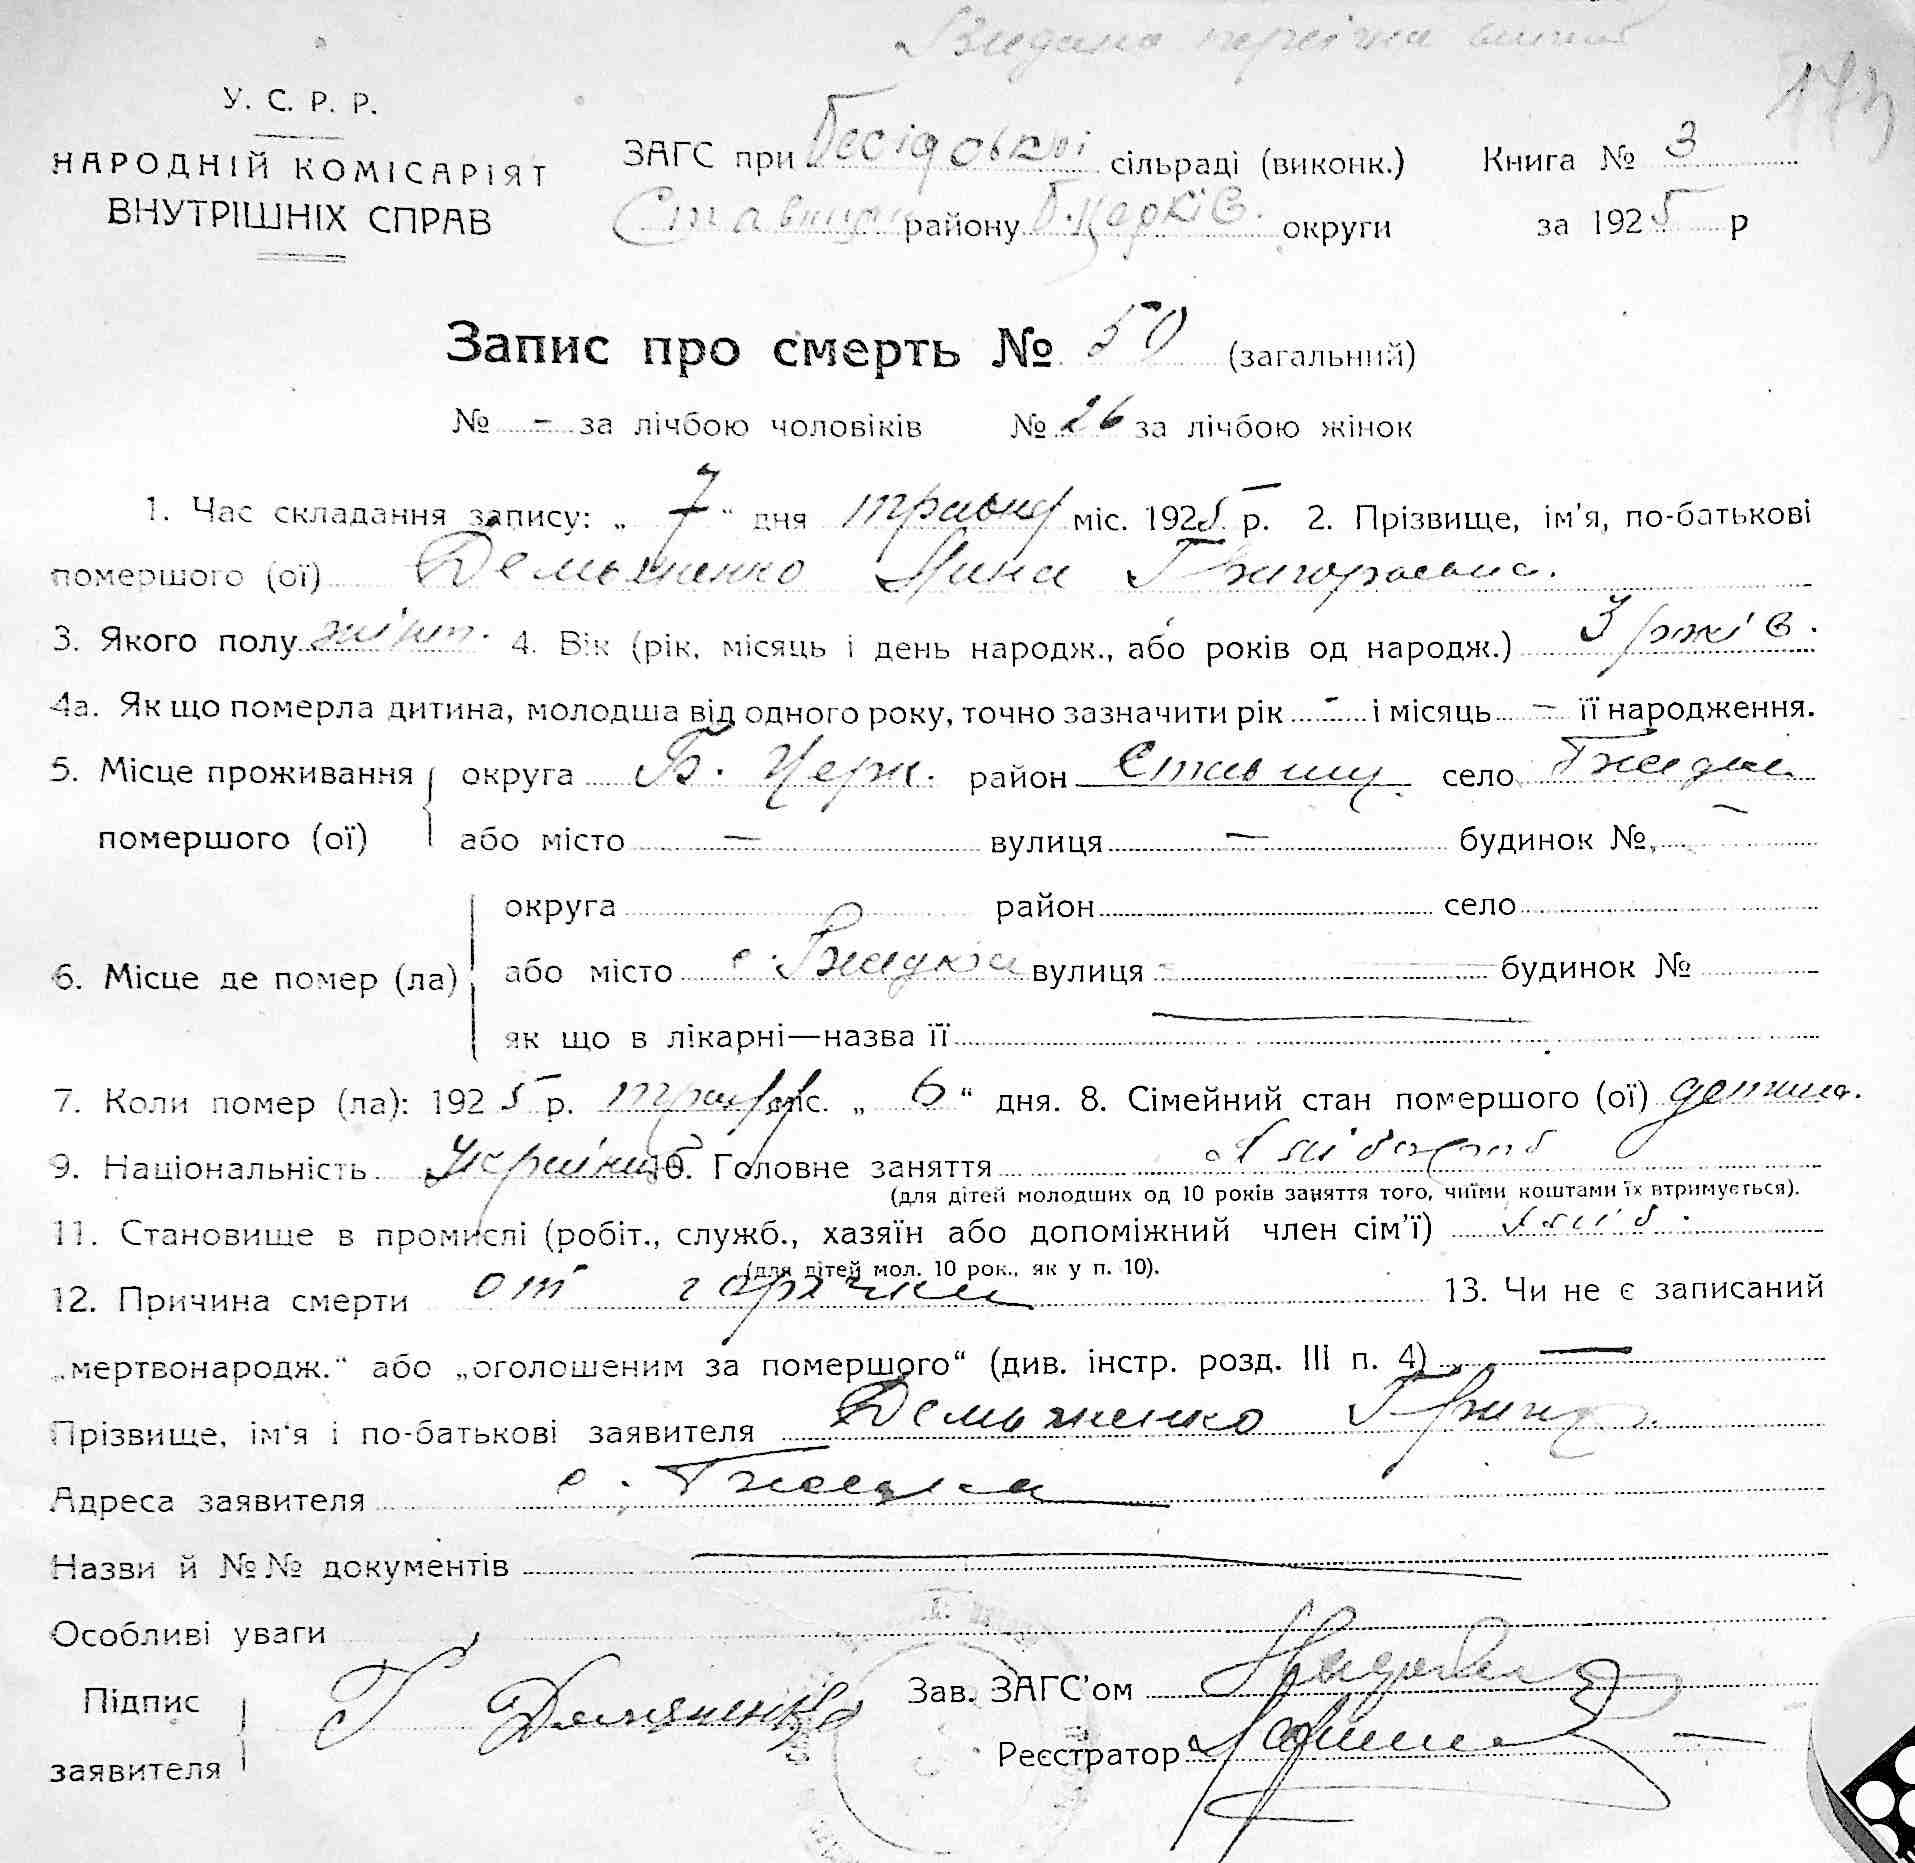 Видана
173
У. С. Р. Р.
НАРОДНІЙ КОМІСАРІЯТ
ВНУТРІШНІХ СПРАВ
ЗАГС при Бесідовській сільраді (виконк.) Книга № 3
Ставищан району Б.Церків. округи за 1925 р
Запис про смерть № 50 (загальний)
№ - за лічбою чоловіків № 26 за лічбою жінок
1. Час складання запису: „ 7 “ дня травня міс. 1925 р. 2. Прізвище, ім'я, по-батькові
помершого (ої) Демьяненко Нина Григоровна.
3. Якого полу жіноч. 4. Вік (рік, місяць і день народж., або років од народж.) 3 років.
4а. Як що померла дитина, молодша від одного року, точно зазначити рік - і місяць — її народження.
5. Місце проживання округа Б. Церк. район Ставищ. село
помершого (ої) або місто — вулиця — будинок №. —
округа район село
6. Місце де помер (ла) або місто с. вулиця будинок №
як що в лікарні—назва її
7. Коли помер (ла): 1925 р. трав міс. „ 6 “ дня. 8. Сімейний стан помершого (ої) детина.
9. Національність Україн 10. Головне заняття хлібороб
(для дітей молодших од 10 років заняття того, чиїми коштами їх втримується).
11. Становище в промислі (робіт., служб., хазяїн або допоміжний член сім'ї)
(для дітей мол. 10 рок., як у п. 10).
12. Причина смерти от горячки 13. Чи не є записаний
„мертвонародж.“ або „оголошеним за помершого“ (див. інстр. розд. III п. 4) —
Прізвище, ім'я і по-батькові заявителя Демьяненко Григор
Адреса заявителя с.
Назви й №№ документів
Особливі уваги
Підпис Г Демяненко Зав. ЗАГС'ом
заявителя Реєстратор